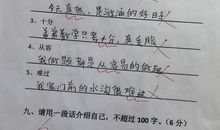 今天真热，是游泳的好日子
3、十分
姜姜数学只考十分，真丢脸
4、从容
我做题都是从容易的做起
5、难过
我家门前的水沟很难过
九、请用一段话介绍自己，不超过100字。（6分）